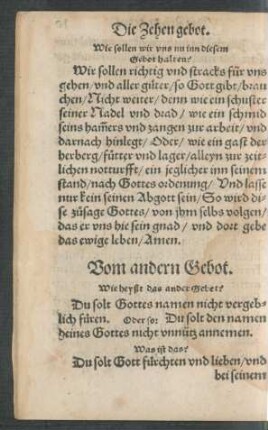 Die Zehen gebot.
Wie sollen wir vns nu inn diesem
Gebot halten?
Wir sollen richtig vnd stracks für vns
gehen/ vnd aller güter/ so Gott gibt/ brau
chen/ Nicht weiter/ denn wie ein schuster
seiner Nadel vnd drad/ wie ein schmid
seins ham̄ers vnd zangen zur arbeit/ vnd
darnach hinlegt/ Oder/ wie ein gast der
herberg/ fütter vnd lager/ alleyn zur zeit-
lichen notturfft/ ein jeglicher inn seinem
stand/ nach Gottes ordenung/ Vnd lasse
nur kein seinen Abgott sein/ So wird di-
se züsage Gottes/ von jhm selbs volgen/
das er vns hie sein gnad/ vnd dort gebe
das ewige leben/ Amen.
Vom andern Gebot.
Wie heyßt das ander Gebot?
Du solt Gottes namen nicht vergeb-
lich füren. Oder so: Du solt den namen
deines Gottes nicht vnnütz annemen.
Was ist das?
Du solt Gott fürchten vnd lieben/ vnd
bei seinem